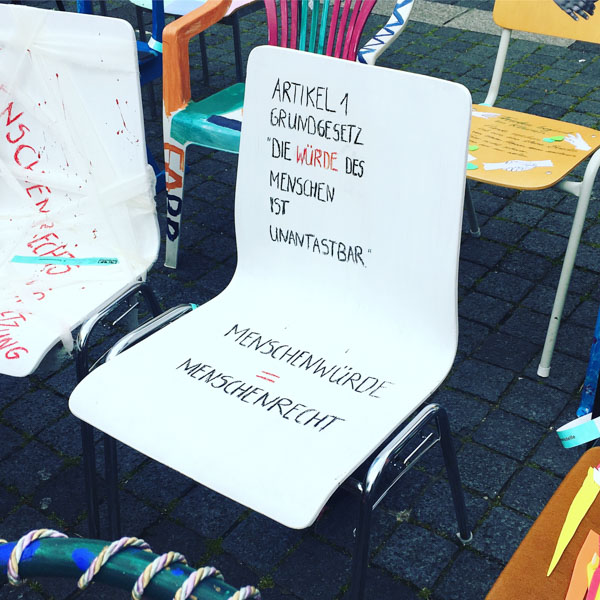 ARTIKEL 1
GRUNDGESETZ
"DIE WÜRDE DES
MENSCHEN
IST
UNANTASTBAR."
MENSCHENWÜRDE
=
MENSCHENRECHT
FAIR